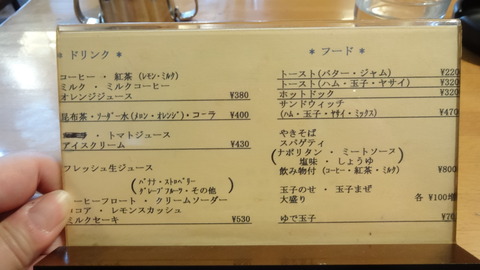 * ドリンク *
コーヒー ・ 紅茶 (レモン・ミルク)
ミルク ・ ミルクコーヒー
オレンジジュース ¥380
昆布茶・ソーダー水(メロン・オレンジ)・コーラ ¥400
・ トマトジュース
アイスクリーム ¥430
フレッシュ生ジュース
(バナナ・ストロベリー
グレープフルーツ・その他)
ーヒーフロート ・ クリームソーダー
コア ・ レモンスカッシュ
ミルクセーキ ¥530
* フード *
トースト(バター・ジャム) ¥220
トースト(ハム・玉子・ヤサイ) ¥320
ホットドック ¥320
サンドウィッチ
(ハム・玉子・ヤサイ・ミックス) ¥470
やきそば
スパゲティ
(ナポリタン ・ ミートソース
塩味 ・ しょうゆ)
飲み物付 (コーヒー・紅茶・ミルク) ¥800
玉子のせ ・ 玉子まぜ
大盛り 各 ¥100増
ゆで玉子 ¥70